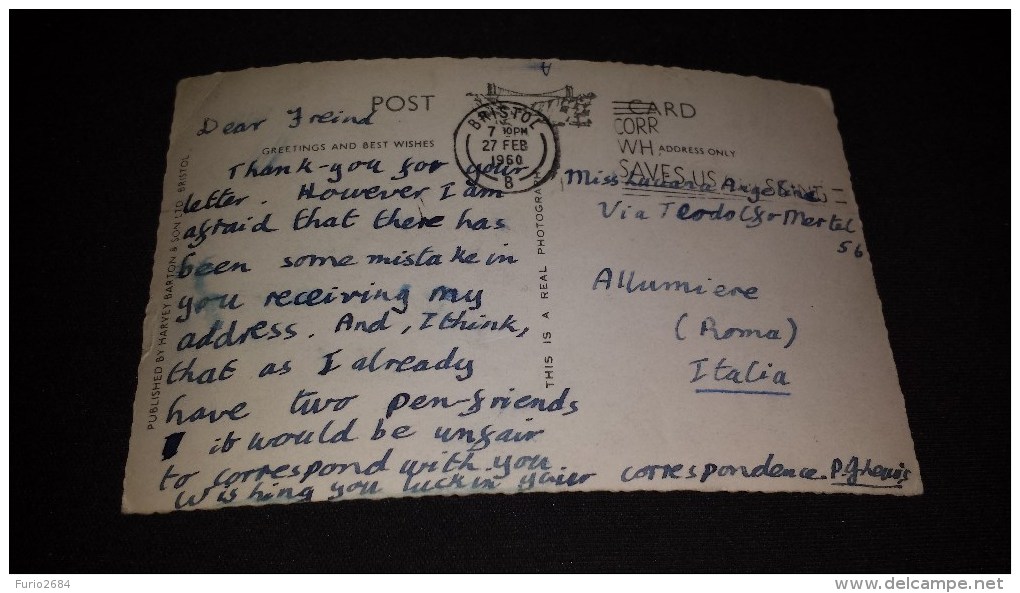 POST
CARD
BRISTOL
7 30PM
27 FEB
1960
B
CORR
WH
SAVES US
ADDRESS ONLY
GREETINGS AND BEST WISHES
PUBLISHED BY HARVEY BARTON & SON LTD. BRISTOL
THIS IS A REAL PHOTOGRAPH
Dear Freind
Thank-you for your
letter. However I am
afraid that there has
been some mistake in
you receiving my
address. And, I think,
that as I already
have two pen-friends
it would be unfair
to correspond with you
Wishing you luck in your correspondence. P.J. Lewis
Miss Angeline
Via Mertel
56
Allumiere
(Roma)
Italia
Furio2684
www.delcampe.net